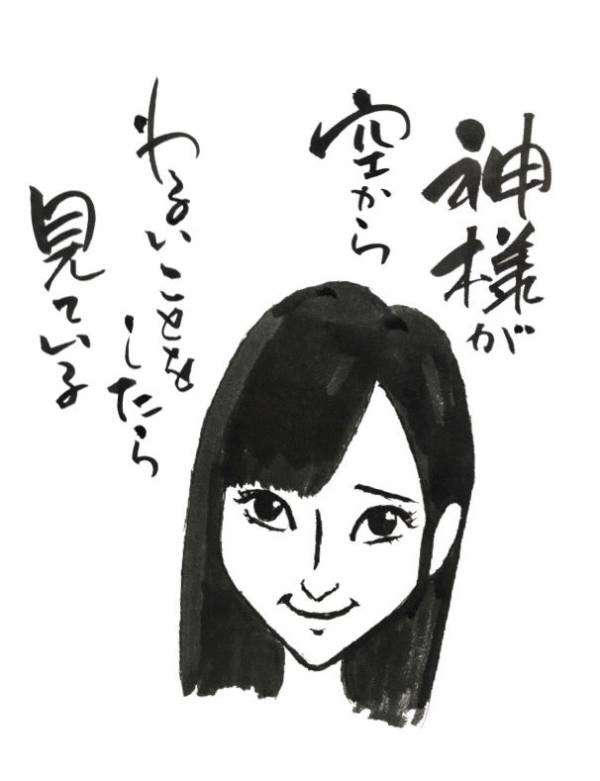 神様が
空から
わるいことを
したら
見ている